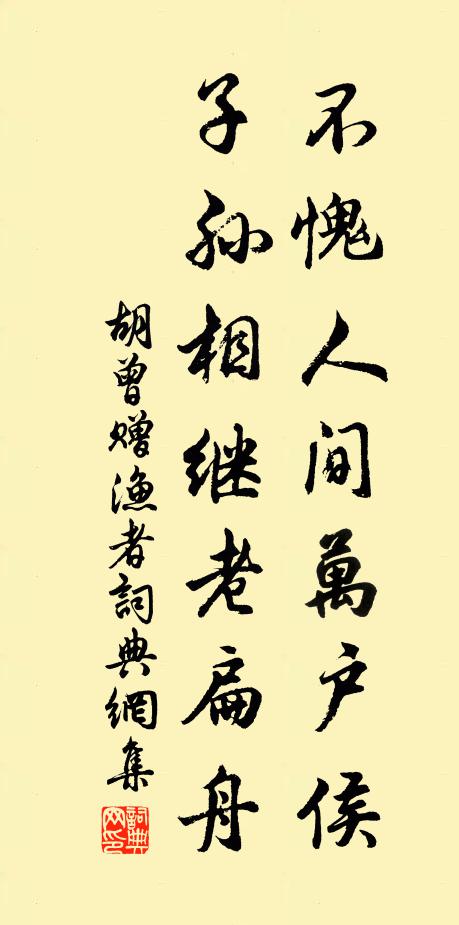 不愧人间萬户侯
子孙相继老扁舟
胡曾赠渔者詞典網集
詞典
网印